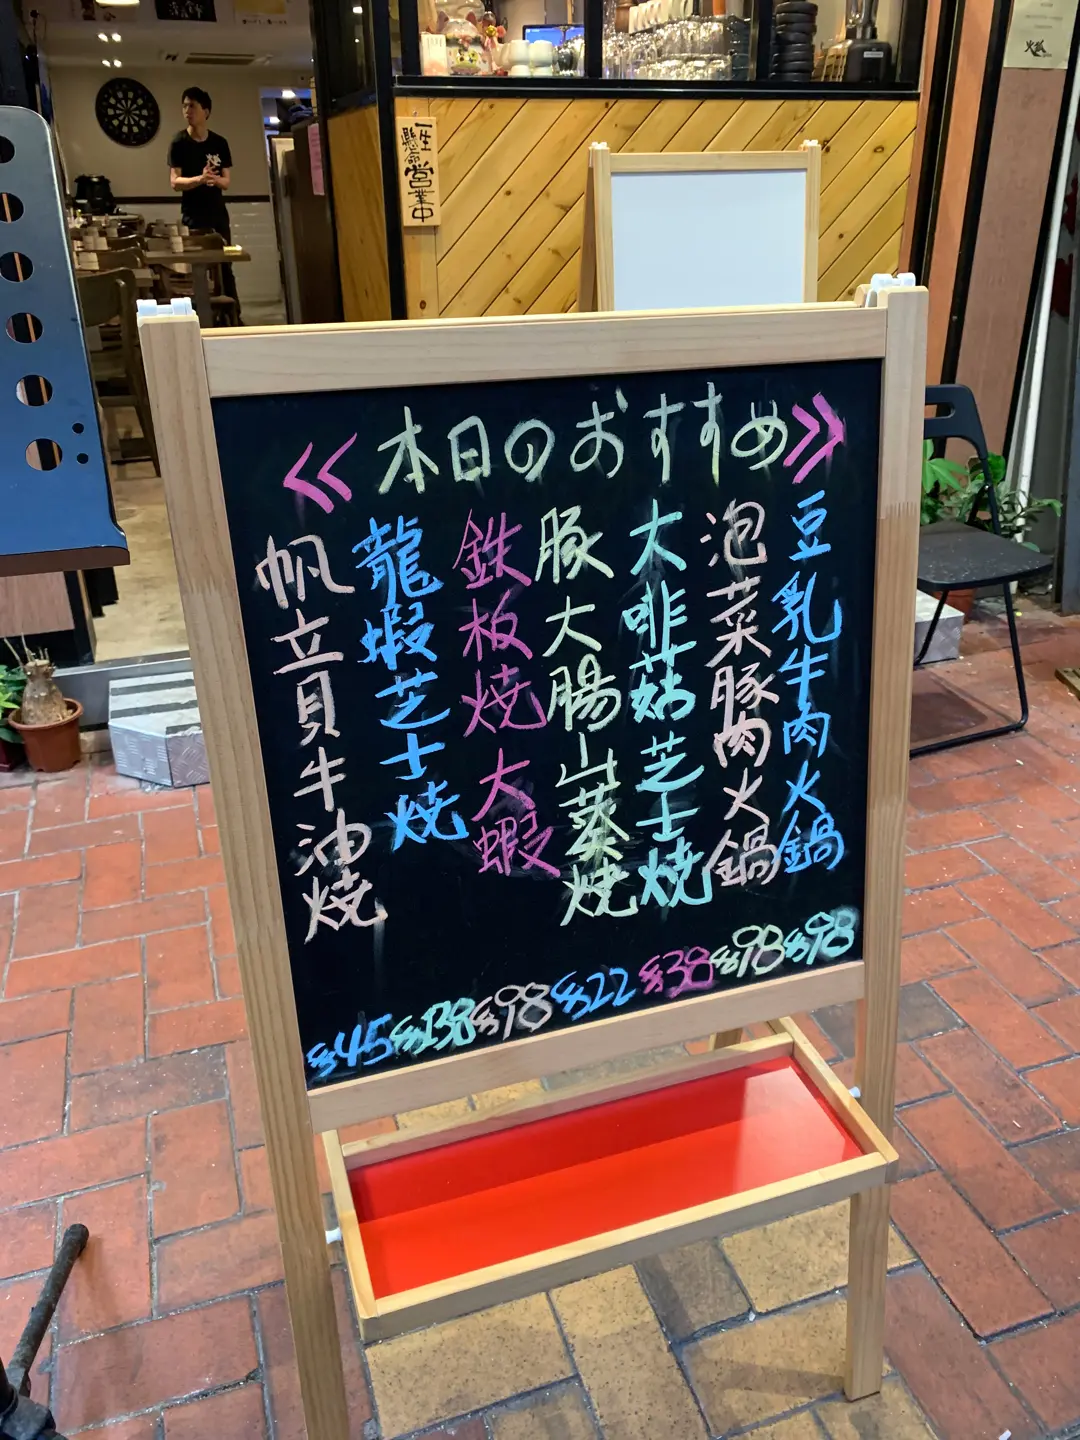 一生懸命営業中
≪本日のおすすめ≫
豆乳牛肉火鍋
泡菜豚肉火鍋
大啡菇芝士燒
豚大腸山葵燒
鉄板燒大蝦
龍蝦芝士燒
帆立貝牛油燒
$45 $138 $98 $22 $38 $98 $98